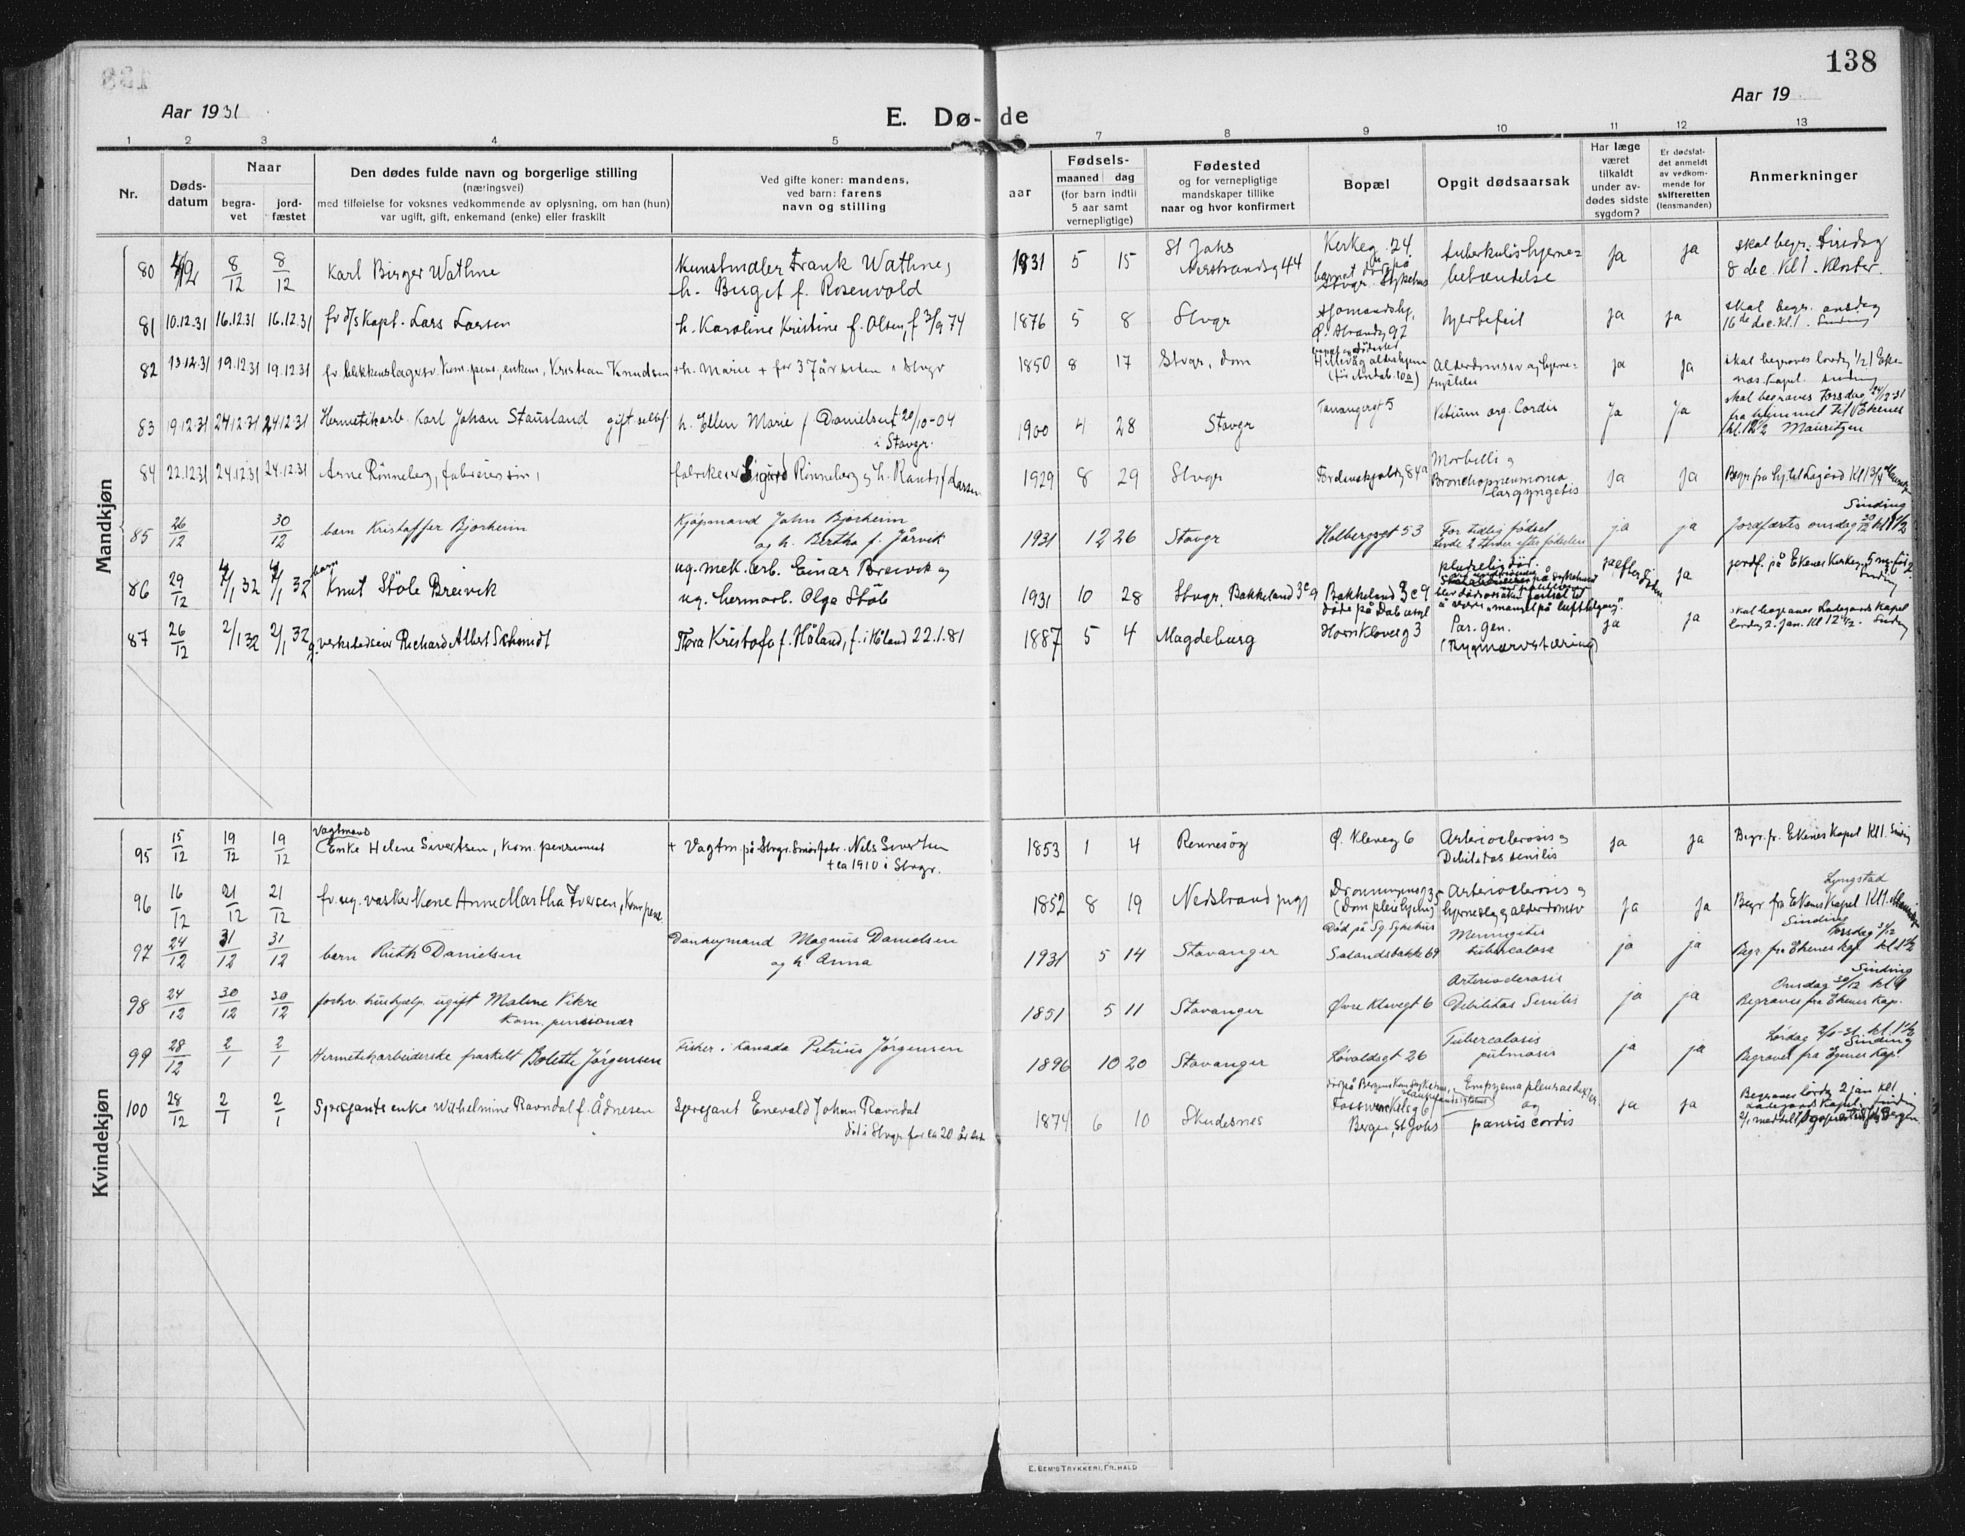 138
Aar 1931
E. Dø-de
Aar 19
1 2 3 4 5 6 7 8 9 10 11 12 13
Nr.
Døds-
datum
Naar
begra-
vet
jord-
fæstet
Den dødes fulde navn og borgerlige stilling
(næringsvei)
med tilføielse for voksnes vedkommende av oplysning, om han (hun)
var ugift, gift, enkemand (enke) eller fraskilt
Ved gifte koner: mandens,
ved barn: farens
navn og stilling
aar
Fødsels-
maaned dag
(for barn indtil
5 aar samt
vernepligtige)
Fødested
og for vernepligtige
mandskaper tillike
naar og hvor konfirmert
Bopæl
Opgit dødsaarsak
Har læge
været
tilkaldt
under av-
dødes sidste
sygdom?
Er dødsfal-
det anmeldt
av vedkom-
mende for
skifteretten
(lensmanden)
Anmerkninger
Mandkjøn
80 4/12 8/12 8/12 Karl Birger Wathne Kunstmaler Frank Wathne, h. Birgit f. Rosenvold 1931 5 15 St Johs Nerstrandsg 44 Kirkeg. 24 barnet døde på Stvgr. Sykehus Tuberkuløs hjerne-betændelse ja ja skal begr. Tirsdag 8 dec. Kl 1. Kloster.
81 10.12.31 16.12.31 16.12.31 fv d/s Kapt. Lars Larsen h. Karoline Kristine f. Olsen, f 3/9 74 1876 5 8 Stvgr Sjømandshj. Ø. Strandg 92 hjertefeil ja ja skal begr. onsdag 16de dec. kl. 1. Sinding
82 13.12.31 19.12.31 19.12.31 fv. blikkenslagersv. Kom. pens., enkem. Kristian Knudsen + h. Marie + for 37 år siden i Stvgr 1850 8 17 Stvgr. dom Hillevåg aldershjem Alderdomssv og hjerne- ja ja skal begraves lørdg 1/2 1 Eke-næs Kapel. Sinding
83 19.12.31 24.12.31 24.12.31 Hermetikarb. Karl Johan Stausland gift selbf. h. Ellen Marie f Danielsen f 20/10-04 i Stavgr. 1900 4 28 Stavgr Tanangergt 5 Vitium org. Cordis Ja Ja skal begraves Torsdag 24/12 31 fra hjemmet til Ekenes kl. 12 1/2 Mauritzen
84 22.12.31 24.12.31 24.12.31 Arne Rinneberg, fabrikeiers sin, fabrikeier Sigurd Rinneberg og h. Randi f Larsen 1929 8 29 Stvgr Tordenskjoldsg 84a Morbilli og Bronchopneumonia Largyngetis ja Ja Begr fra Hjelst Lagård Kl 1 3/4
85 26/12 30/12 barn Kristoffer Bjorheim Kjøpmand John Bjorheim og h. Bertha f. Jårvik 1931 12 26 Stavgr Holbergsgt 53 For tidlig fødsel levde 2 timer efter fødselen ja ja Sinding Jordfæstes onsdag 30/12 kl 1 1/2
86 29/12 4/1 32 4/1 32 barn Knut Støle Breivik ug. mek. arb. Einar Breivik og ug. hermarb. Olga Støle 1931 10 28 Stvgr. Bakkeland 3c Bakkeland 3c 9 døde på pludselig død. "mangel på luft" ja efter døden ja jordf. på Ekenes Kirkeg. Sinding
87 26/12 2/1 32 2/1 32 g. verkstedseier Richard Albert Schmidt Tora Kristofa f. Høland, f. i Høland 22.1.81 1887 5 4 Magdeburg Horrikloveig 3 Par. gen. (Rygmarvstæring) ja ja skal begraves Ladegaards Kapel lørdag 2. jan. Kl 12 1/2. Sinding
Kvindekjøn
95 15/12 19/12 19/12 Vagtmans Enke Helene Sivertsen, kom. pensionist + Vagtm. på Stvgr. Smørfabr. Nils Sivertsen + ca 1910 i Stvgr. 1853 1 4 Rennesøy Ø. Kleveg 6 Arterioclerosis og Debilitas senilis ja ja Begr. fr. Ekenes Kapel Kl 1. Sinding
96 16/12 21/12 21/12 fv. ug. vaskerkone Anne Martha Iversen, Kom pens. 1852 8 19 Nedstrand prgj Dronningensg 35 (Dom pleiehjem) Arterioclerosis og hjerneslag og alderdomsv ja ja Lyngstad Begr fra Ekenes Kapel Kl 1.
97 24/12 31/12 31/12 barn Ruth Danielsen Dankeymand Magnus Danielsen og h Anna 1931 5 14 Stavanger Død på Sg. Sykehus Solandsbakke 69 Meningitis tubercalosa ja ja Sinding Torsdag 31/12 Begr. fra Ekenes kap. kl 1 1/2
98 24/12 30/12 30/12 forhv. hushjelp ugift Malene Vikre Kom. pensionær 1851 5 11 Stavanger Øvre Klevegt 6 Arterioclerosis Debilitas Senilis ja ja Sinding Onsdag 30/12 kl 1 Begraves fra Ekenes Kap.
99 28/12 2/1 2/1 Hermetikarbeiderske fraskilt Bolette Jørgensen Fisker i Kanada Petrius Jørgensen 1896 10 20 Stavanger Hovaldsgt 26 Tubercolosis pulmosis ja ja Lørdag 2/1-32. kl 1 1/2 Sinding Begraves fra Egenes Kap.
100 28/12 2/1 2/1 Sjersjants enke Wilhelmine Ravndal f. Ådnesen Sjersjant Enevald Johan Ravndal Død i Stvgr for ca 20 år sid. 1874 6 10 Skudesnes død på Bergens Kom. Sykehus, Fosswinkelsg 6 Bergen, St Johs Empyema pleurae dext. og paresis cordis ja ja Begraves lørdg 2 jan kl 1 Ladegaards Kapel, Sinding
E. BEM'S TRYKKERI, FR. HALD